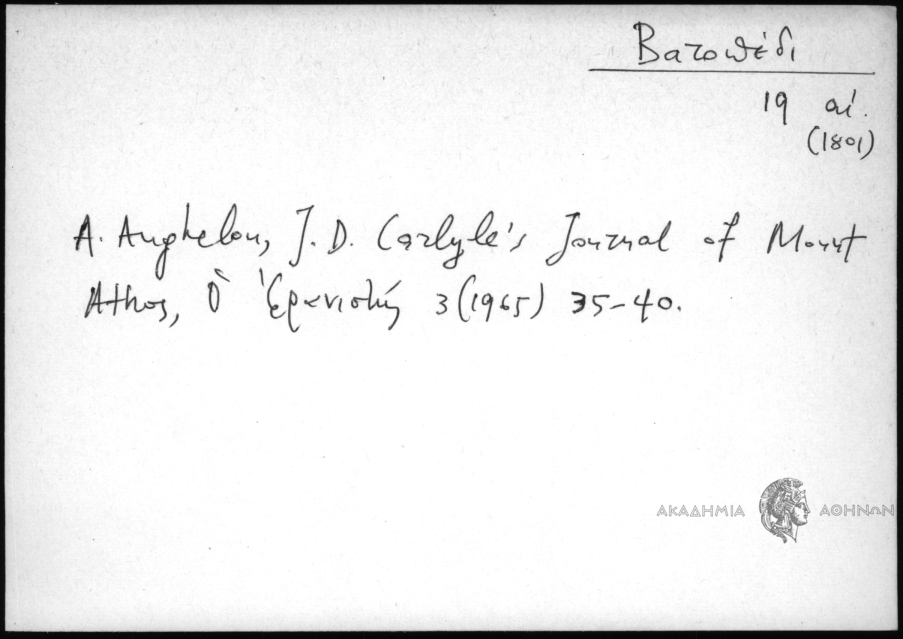 Βατοπέδι
19 αἰ.
(1801)
A. Anghelou, J. D. Carlyle's Journal of Mount
Athos, Ὁ Ἐρανιστής 3 (1965) 35-40.
ΑΚΑΔΗΜΙΑ ΑΘΗΝΩΝ